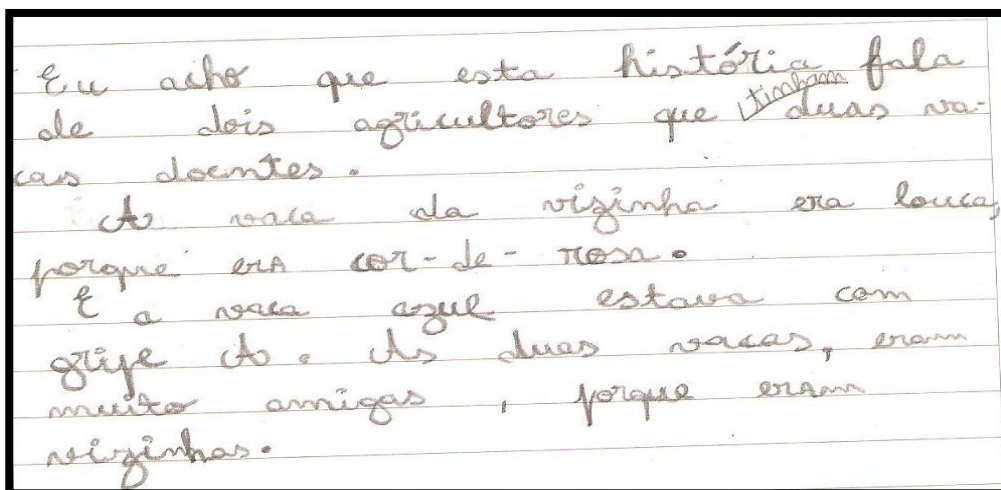 Eu acho que esta história fala
de dois agricultores que tinham duas va-
cas doentes.
A vaca da vizinha era louca,
porque era cor-de-rosa.
E a vaca azul estava com
gripe A. As duas vacas, eram
muito amigas, porque eram
vizinhas.